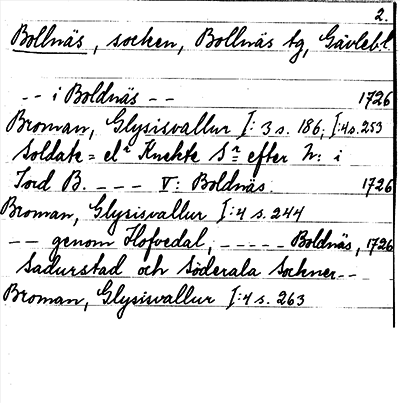 2.
Bollnäs, socken, Bollnäs tg, Gävleb.l.
-- i Boldnäs -- 1726
Broman, Glysisvallur I: 3 s. 186, I:4 s. 253
Soldate= elr Knehte Sr= efter N: i
Jord B. --- V: Boldnäs. 1726
Broman, Glysisvallur I:4 s. 244
-- genom Hofvedal, ----- Boldnäs, 1726
Sadurstad och Söderala Sockner--
Broman, Glysisvallur I:4 s. 263